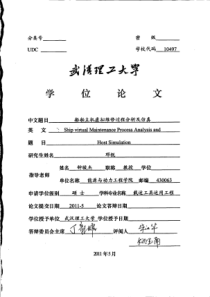 分类号 密 级
UDC 学校代码 10497
武汉理工大学
学 位 论 文
中文题目 船舶主机虚拟维修过程分析及仿真
英 文 Ship virtual Maintenance Process Analysis and
Host Simulation
研究生姓名
姓名 职称 教授 学位
指导老师
单位名称 能源与动力工程学院 邮编 430063
申请学位级别 硕士 学科专业名称 载运工具运用工程
论文提交日期 2011-5 论文答辩日期
学位授予单位 武汉理工大学 学位授予日期
答辩委员会主席 评阅人
2011年5月